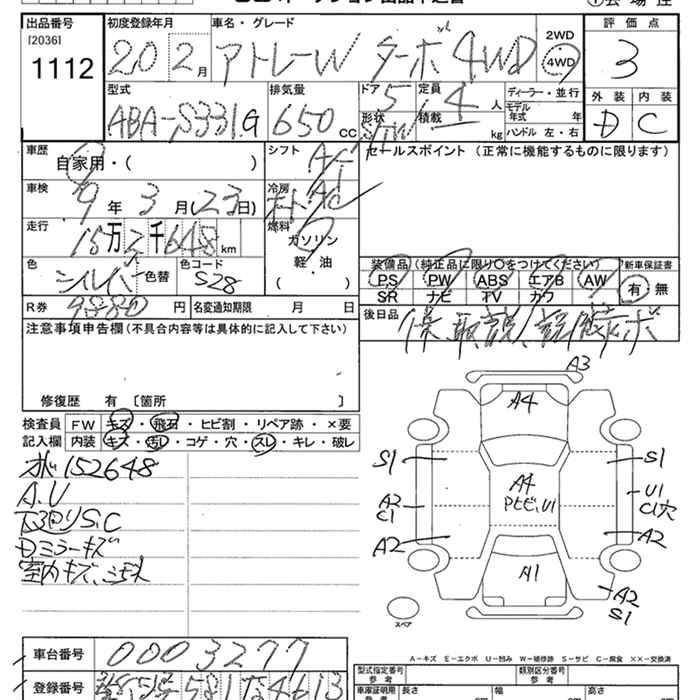 出品番号
[2036]
1112
初度登録年月
20 2月
車名・グレード
アトレーW ターボ 4WD
2WD
4WD
評価点
3
外装 内装
D C
型式
ABA-S331G
排気量
650 CC
ドア
5
形状
S/W
定員
4人
積載
kg
ディーラー・並行
モデル年式 年
ハンドル 左・右
車歴
自家用・( )
シフト
AT
セールスポイント (正常に機能するものに限ります)
車検
9年3月(23日)
冷房
AC
走行
15万2千648km
燃料
ガソリン
軽・油
( )
色
シルバー
色替
色コード
S28
装備品 (純正品に限り〇をつけてください)
PS PW ABS エアB AW
SR ナビ TV カワ
新車保証書
有 無
R券
9880円
名変通知期限 月 日
後日品
保、取説、
注意事項申告欄(不具合内容等は具体的に記入して下さい)
修復歴 有 〔箇所 〕
検査員
記入欄
FW キズ・飛石・ヒビ割・リペア跡・×要
内装 キズ・汚レ・コゲ・穴・スレ・キレ・破レ
152648
A.U
下回りS.C
Dミラーキズ
室内キズ、ヨゴレ
A3
A4
S1
S1
A4
Pヒビ、U1
A2
C1
U1
C1穴
A2
A2
A1
A2
S1
スペア
A-キズ E-エクボ U-凹み W-補修跡 S-サビ C-腐食 XX-交換済
車台番号
0003277
登録番号
581 な4613
型式指定番号
参考
類別区分番号
参考
車庫証明用
参考
長さ
幅
高さ